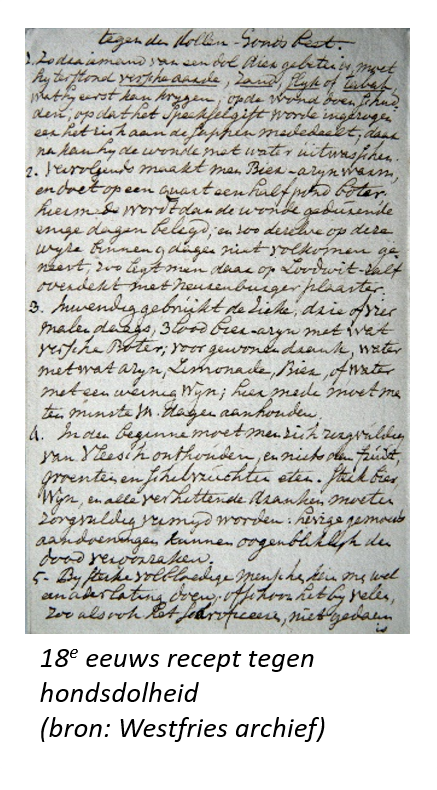 tegen den dollen Honds Beet.
1. Zodra iemand van een dol dier gebeten is, moet
hy terstond versche aarde, Zand, slyk of tabak
wat hy eerst kan krygen, op de wond doen schud
den, op dat het Speekselgift worde ingezogen
eer het zich aan de sappen mededeelt, daar
na kan hy de wonde met water uitwasschen.
2. Vervolgens maakt men Bier-azyn warm,
en doet op een quart een half pond boter.
hierm de wordt dan de wonde gedurende
enige dagen belegd, en zoo dezelve op deze
wyze binnen 9 dagen niet volkomen ge
neest, zoo legt men daar op Loodwit-zalf
overdekt met neurenburger plaaster.
3. Inwendig gebruikt de zieke, drie of vier
malen daags, 3 lood bier-azyn met wat
versche Boter; voor gewonen drank, water
met wat azyn, Limonade, Bier, of water
met een weinig Wyn; hier mede moet me
ten minste 14. dagen aanhouden.
4. In den beginne moet men zich zorgvuldig
van Vleesch onthouden, en niets dan fruit,
groenten en schelvruchten eten. Sterk bier,
Wyn, en alle verhittende dranken moeten
zorgvuldig vermyd worden: hevige gemoeds
aandoeningen kunnen oogenblikkelijk den
dood veroorzaken.
5. By sterke volbloedige menschen, kan me wel
een aderlating doen; offschoon het by velen,
zoo als ook het, niet gedaan
is
18e eeuws recept tegen
hondsdolheid
(bron: Westfries archief)